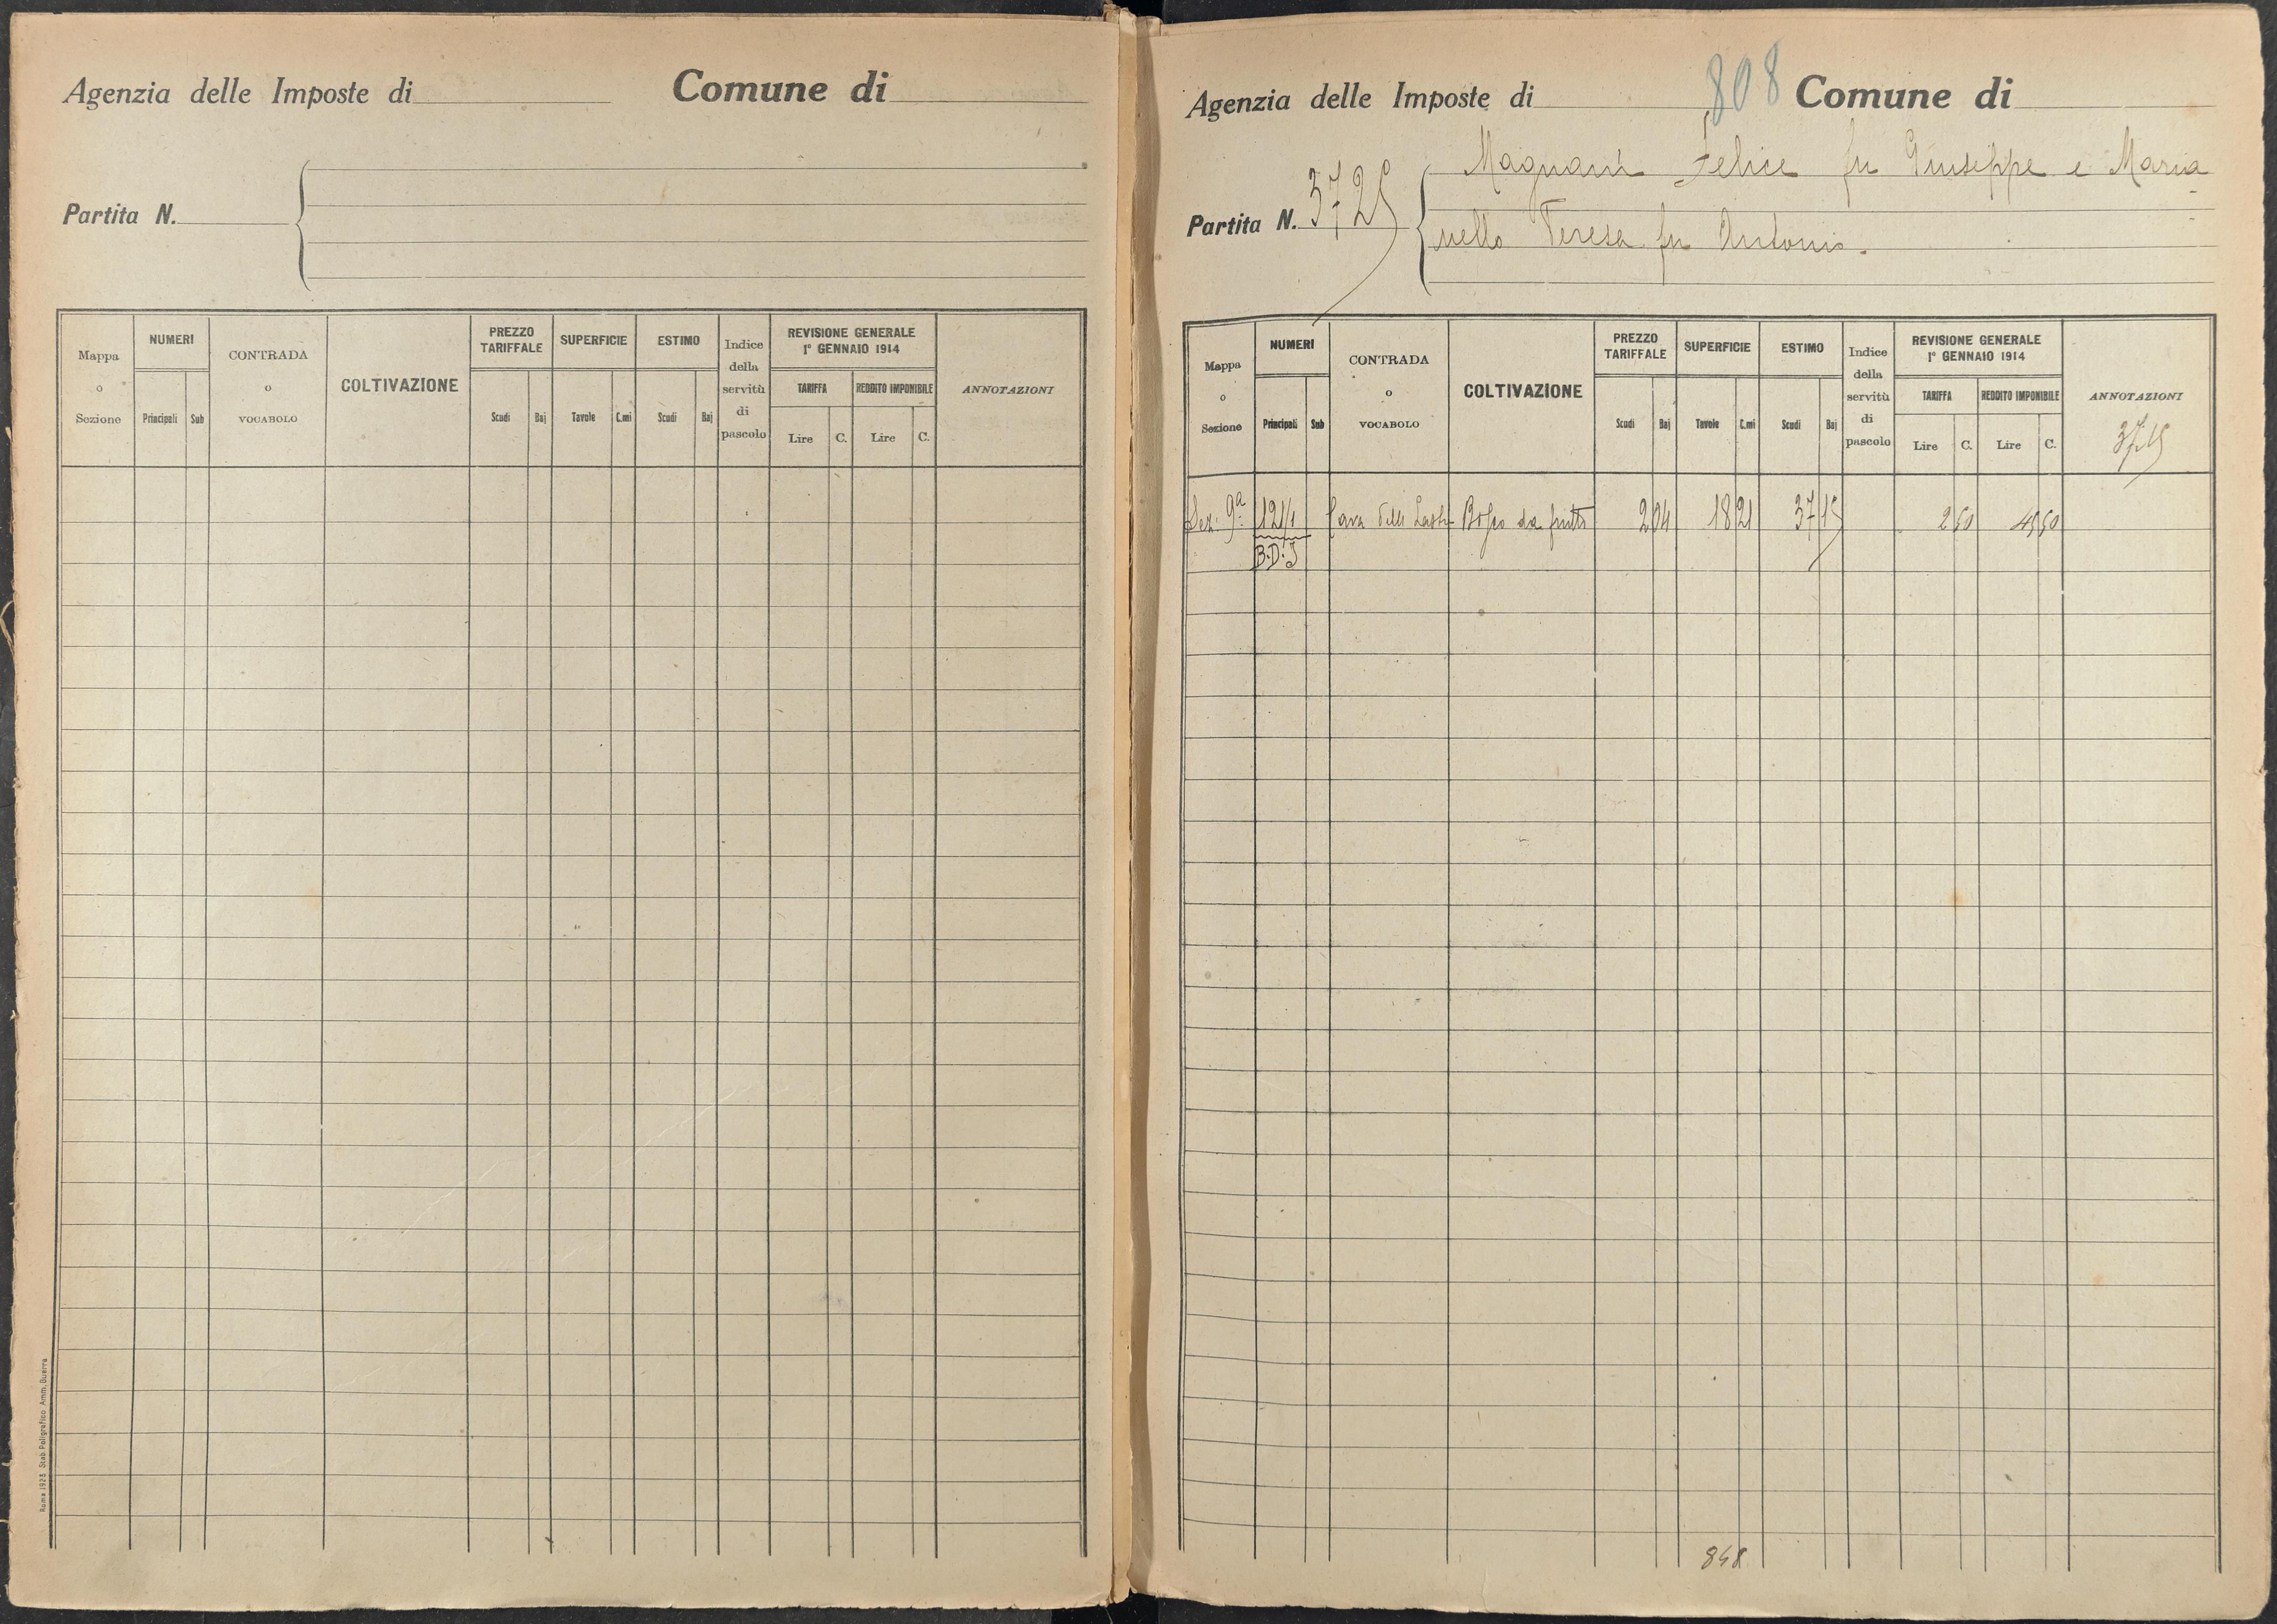 Agenzia delle Imposte di Comune di
Partita N.
Mappa o Sezione NUMERI Principali Sub CONTRADA o VOCABOLO COLTIVAZIONE PREZZO TARIFFALE Scudi Baj SUPERFICIE Tavole C.mi ESTIMO Scudi Baj Indice della servitù di pascolo REVISIONE GENERALE 1° GENNAIO 1914 TARIFFA Lire C. REDDITO IMPONIBILE Lire C. ANNOTAZIONI
Roma 1923 Stab. Poligrafico Amm. Guerra
808
Agenzia delle Imposte di Comune di
Partita N. 3725
Magnani Felice fu Giuseppe e Maria
nello Teresa fu Antonio.
Mappa o Sezione NUMERI Principali Sub CONTRADA o VOCABOLO COLTIVAZIONE PREZZO TARIFFALE Scudi Baj SUPERFICIE Tavole C.mi ESTIMO Scudi Baj Indice della servitù di pascolo REVISIONE GENERALE 1° GENNAIO 1914 TARIFFA Lire C. REDDITO IMPONIBILE Lire C. ANNOTAZIONI
37.15
Sez: 9a 121/1 Cava da frutto 2 04 18 21 37 15 2 50 45 50
B.D.I
848